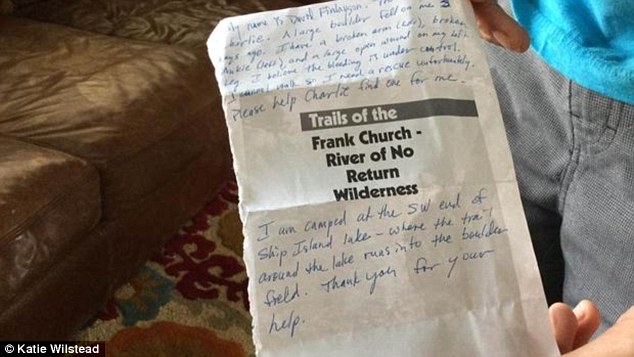 My name is David Finlayson. I'm
Charlie. A large boulder fell on me 3
days ago. I have a broken arm, broken
Ankle and a large open wound on my left
leg. I believe the bleeding is under control.
I cannot walk so I need a rescue unfortunately.
Please help find one for me.
Trails of the
Frank Church -
River of No
Return
Wilderness
I am camped at the SW end of
Ship Island lake - where the trail
around the lake runs into the boulder
field. Thank you for your
help.
© Katie Wilstead